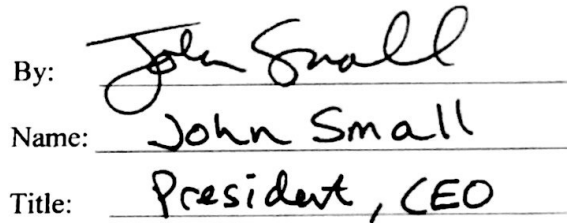 By: John Small
Name: John Small
Title: President, CEO